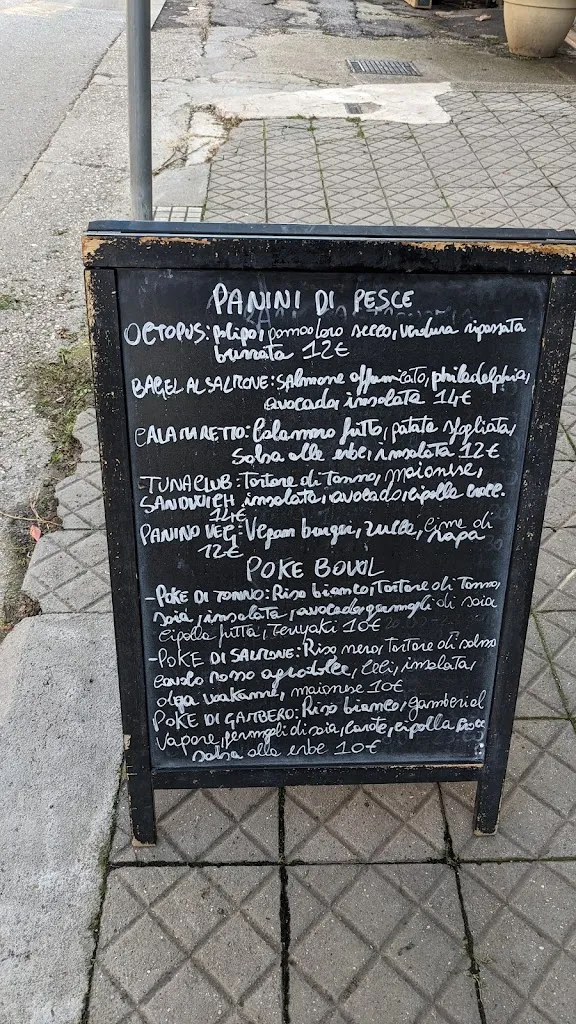 PANINI DI PESCE
OCTOPUS: polipo, pomodoro secco, verdura ripassata
burrata 12€
BAGEL AL SALMONE: salmone affumicato, philadelphia,
avocado, insalata 14€
CALAMARETTO: Calamaro fritto, patate sfogliata,
salsa alle erbe, insalata 12€
TUNA CLUB: Tartare di Tonno, maionese,
SANDWICH, insalata, avocado, cipolla croce.
14€
PANINO VEG: Vegan burger, zucca, cime di
12€ rapa
POKE BOWL
-POKE DI TONNO: Riso bianco, Tartare di Tonno,
soia, insalata, avocado, germogli di soia
cipolla fritta, teriyaki 10€
-POKE DI SALMONE: Riso nero, tartare di salmo
cavolo rosso agrodolce, ceci, insalata,
alga wakame, maionese 10€
POKE DI GAMBERO: Riso bianco, gamberi al
Vapore, germogli di soia, carote, cipolla croce
salsa alle erbe 10€